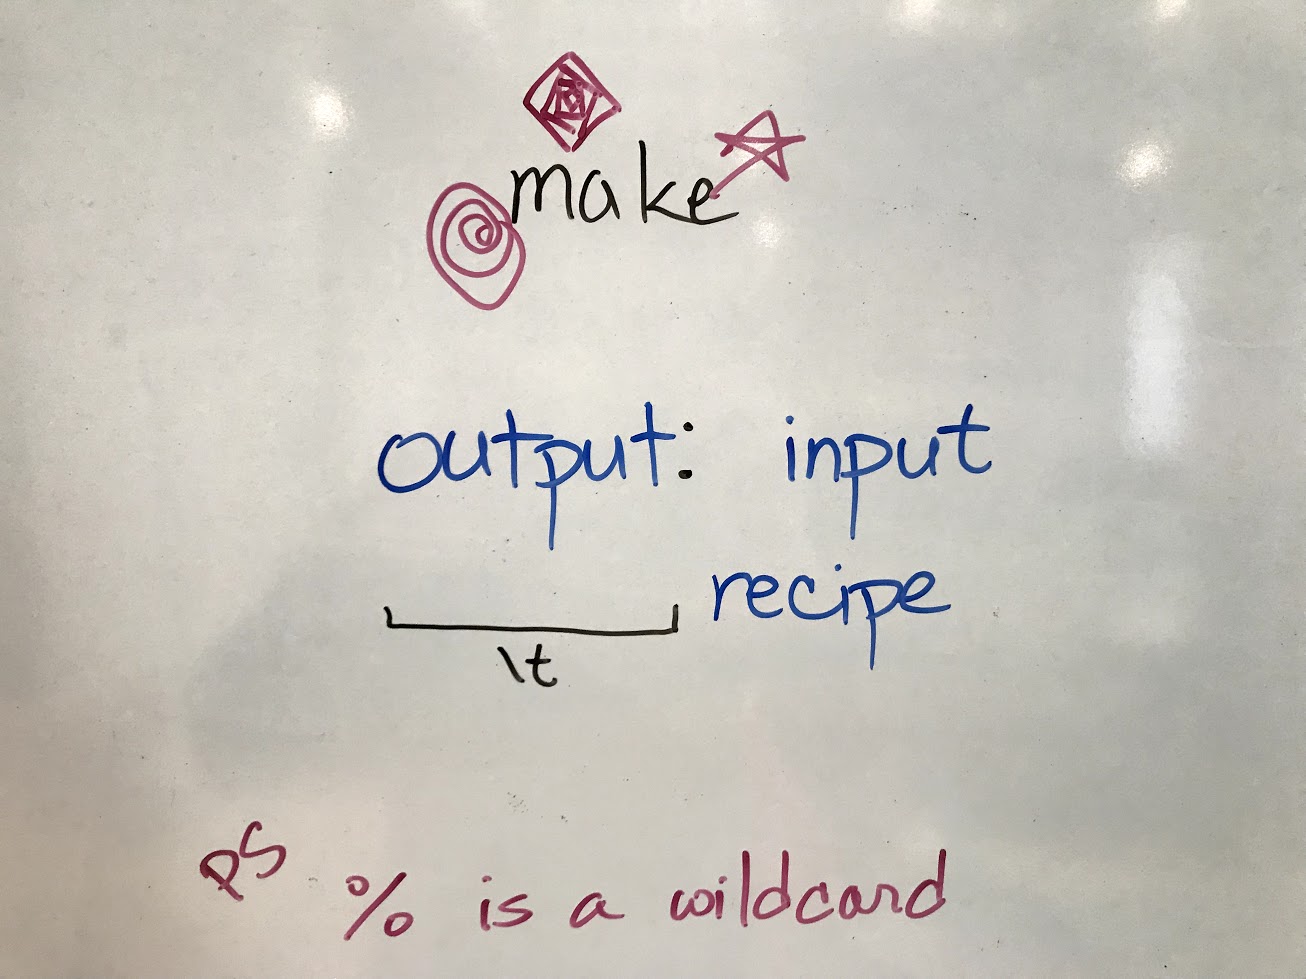 make
output: input
recipe
\t
PS % is a wildcard